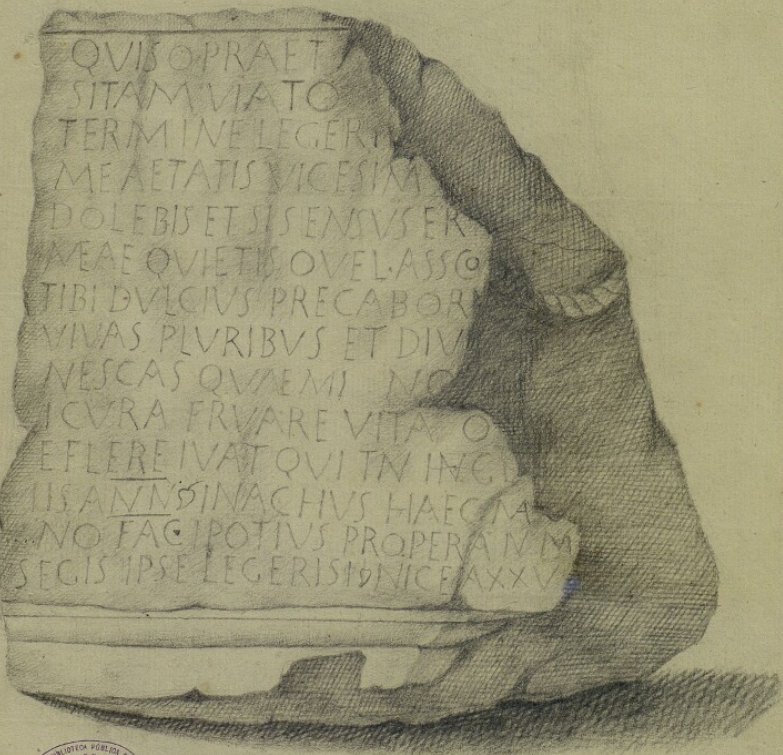 QVISOPRAET
SITAM VIATO
TERMINE LEGERI
ME AETATIS VICESIM
DOLEBIS ET SI SENSVS ER
MEAE QVIETIS OVEL·ASSO
TIBI DVLCIVS PRECABOR
VIVAS PLVRIBVS ET DIV
NESCAS QVAE MI NO
ICVRA FRVARE VITA O
EFLERE IVAT QVI TN
IIS ANN INACHVS HAEC
NO FAC POTIVS PROPERA
SEGIS IPSE LEGERIS NICE AXXV
BIBLIOTECA PÚBLICA